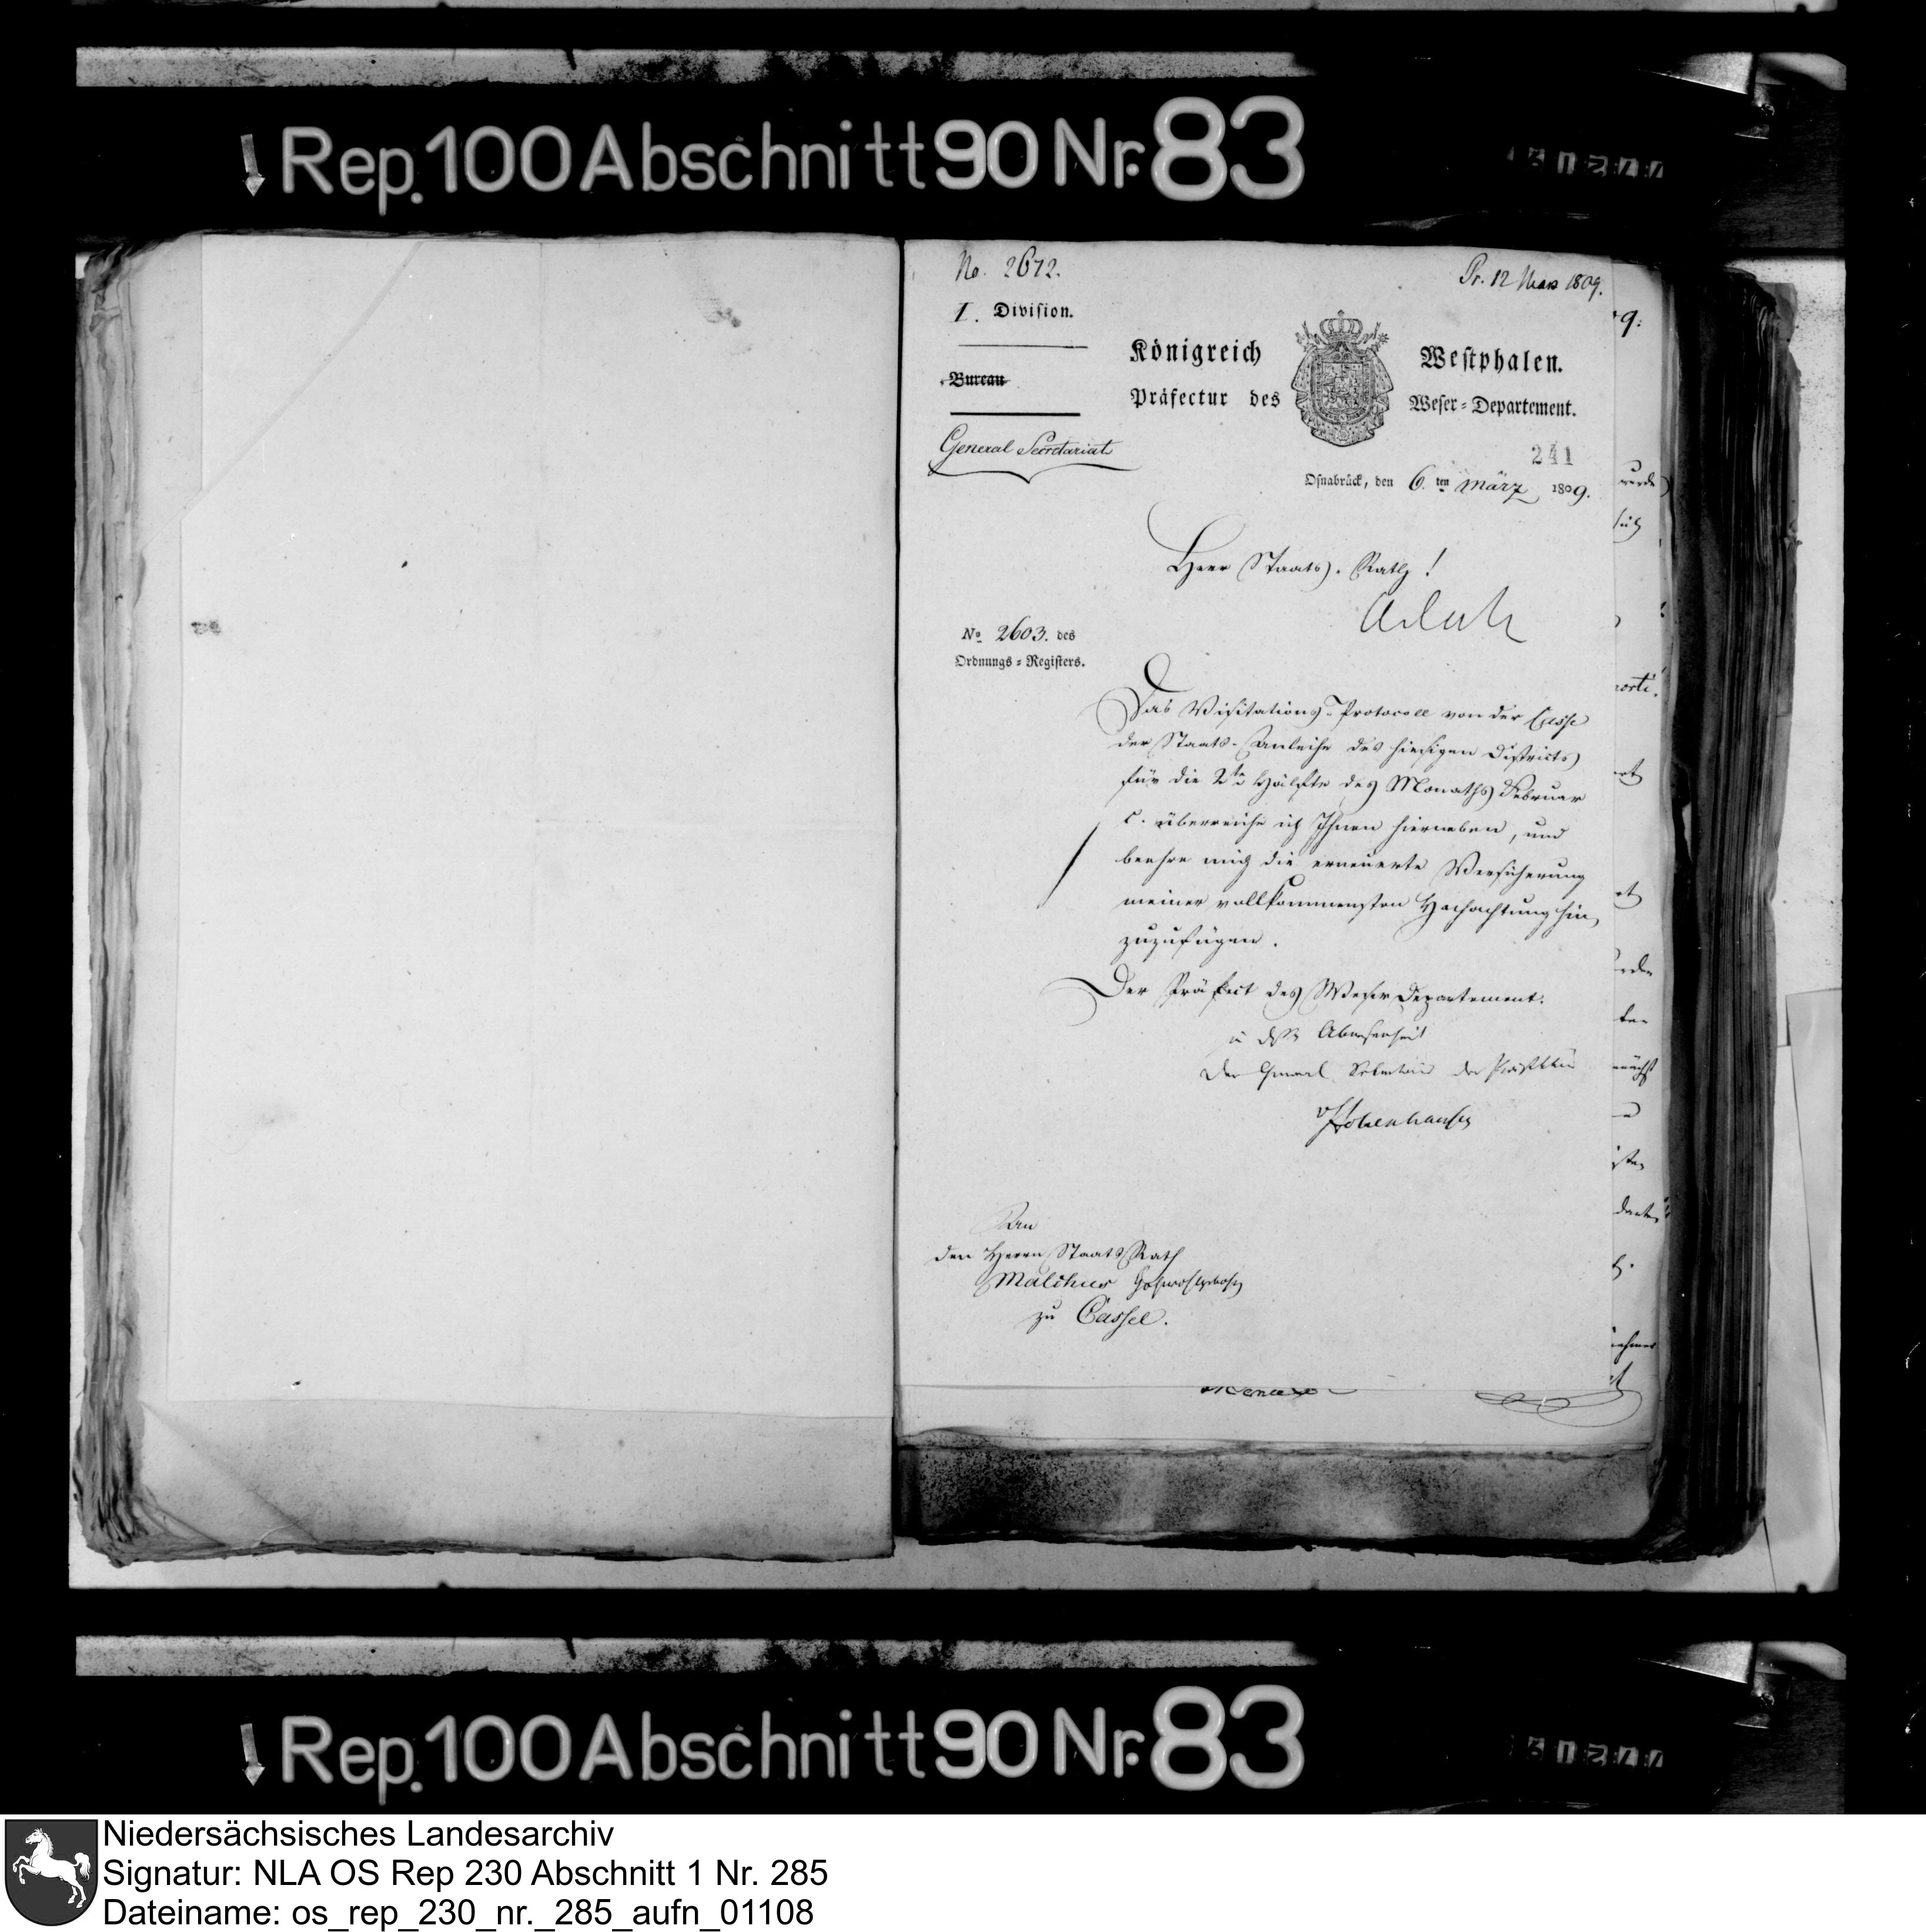 Rep. 100 Abschnitt 90 Nr. 83
No. 2672.
Pr. 12 Mars 1809.
I. Division.
Königreich Westphalen.
Bureau
Präfectur des Weser-Departement.
General Secretariat
241
Osnabrück, den 6.ten März 1809.
Herr Staats-Rath!
No 2603. des
Ordnungs-Registers.
Das Visitations-Protocoll von der Casse
der Staats-Anleihe des hiesigen Districts
für die 2te Hälfte des Monaths Februar
c. überreiche ich Ihnen hierneben, und
beehre mich die erneuerte Versicherung
meiner vollkommensten Hochachtung hin
zuzufügen.
Der Präfect des Weser Departement.
in dessen Abwesenheit
Der General Secretair der Präfektur
vHohenhausen
An
den Herrn Staats Rath
Malchus Hochwohlgebohrn
zu Cassel.
Rep. 100 Abschnitt 90 Nr. 83
Niedersächsisches Landesarchiv
Signatur: NLA OS Rep 230 Abschnitt 1 Nr. 285
Dateiname: os_rep_230_nr._285_aufn_01108